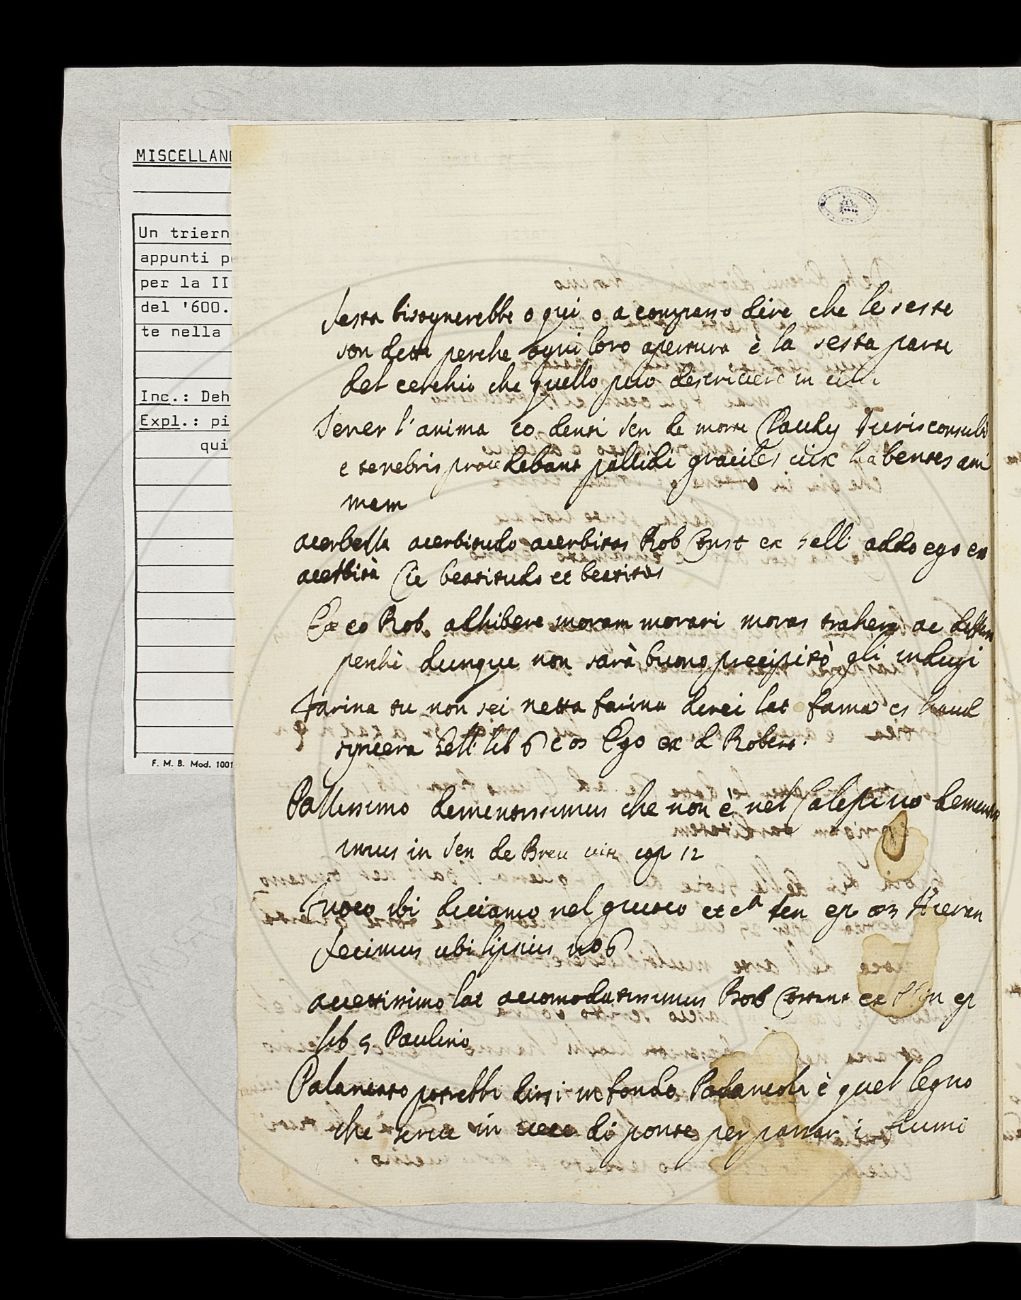 MISCELLANE
Un triern
appunti p
per la II
del '600.
te nella
Inc.: Deh
Expl.: pi
qui
F. M. B. Mod. 1001
Sesta bisognerebbe o qui o a compasso dire che le seste
son dette perche ogni loro apertura è la sesta parte
del cerchio che quello puo descrivere in
Tener l'anima co denti Sen de morte Claudij Jurisconsulti
e tenebris procedebant pallidi graciles vix habentes ani
mam
acerbella acerbitudo acerbitas Rob Const ex Gelli addo ego ex
acerbità Cic beatitudo et beatitas
Ex eo Rob. adhibere moram morari moras trahere ac
perchè dunque non sarà buono precipitò gli indugi
farina tu non sei netta farina direi lat fama es haud
syncera Gell lib 6 c Ego ex d Robert.
Pallissimo dementissimus che non è nel Calepino dementis
imus in Sen de Brev vitæ cap 12
Giuoco ibi diciamo nel giuoco etc Sen ep
fecimus ubi lipsius no 6
accettissimo lat accomodatissimus Rob Const ex Plin ep
lib 5 Paulino
Palancato potrebbe dirsi in fondo Palancola è quel legno
che serve in vece di ponte per passar i fiumi